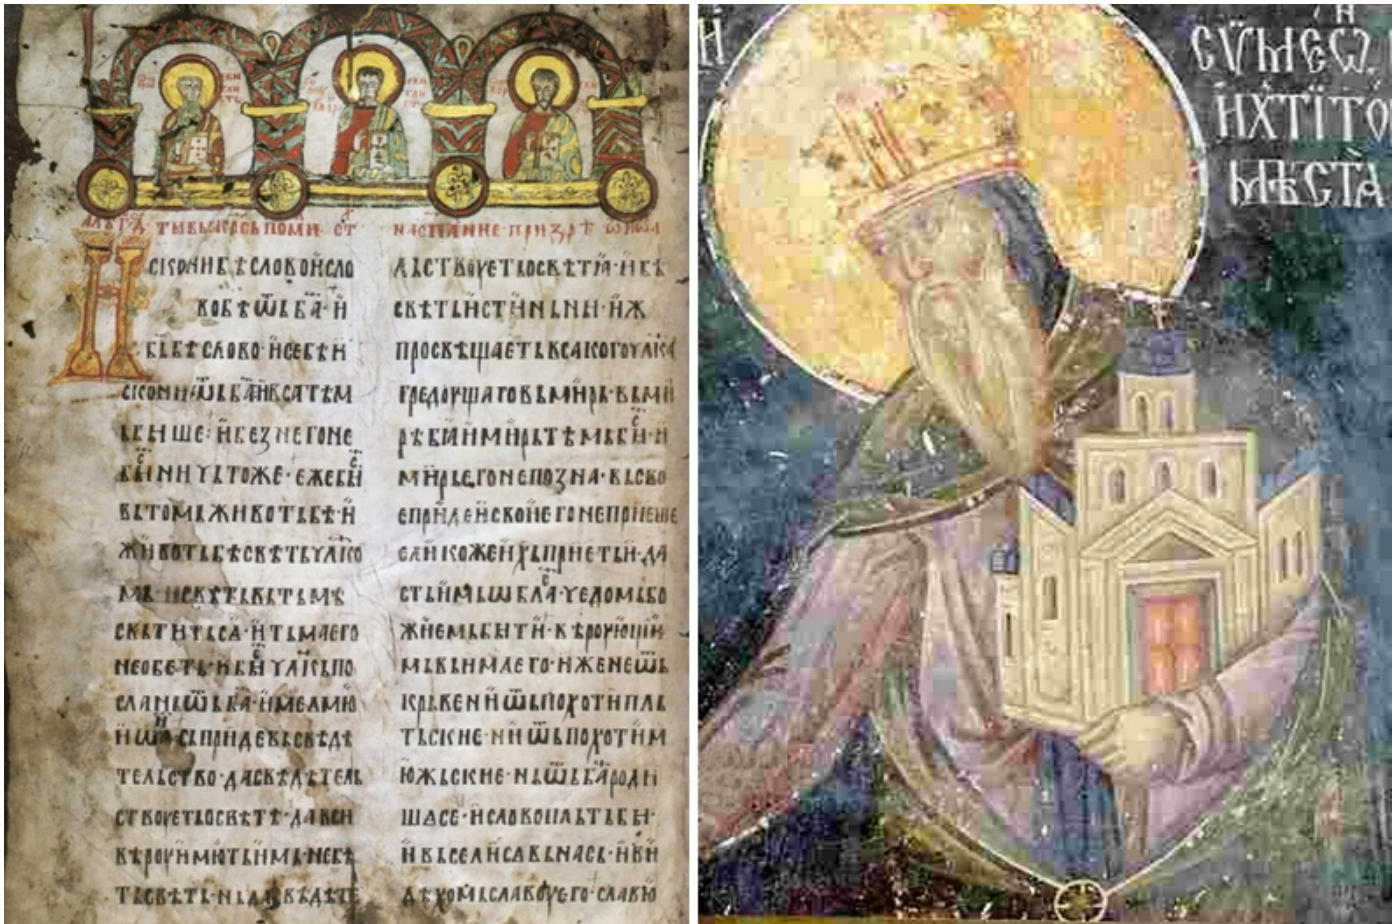 СКОНИ БѢ СЛОВО Й СЛО
ВО БѢ Ѿ БА · Й
БЬ БѢ СЛОВО · Й СЕ БѢ Й
СКОНИ Ѿ БА Й ВСА ТѢМ
Ь БЫШЕ · Й БЕЗ НЕГО НЕ
БЫ НИЧЬТОЖЕ · ЕЖЕ БЫ
ВЬ ТОМЬ ЖИВОТЬ БѢ · Й
ЖИВОТЬ БѢ СВѢТЬ ЧЛКО
МЬ · И СВѢТЬ ВЬ ТЬМѢ
СВѢТИТЬ СА · Й ТЬМА ЕГО
НЕ ОБЕТЬ · И БЫ ЧЛКЬ ПО
СЛАНЬ Ѿ БА · ЙМЕ ѤМЮ
ЙѠА СЬ ПРИДЕ ВЬ СВѢДѢ
ТЕЛЬСТВО · ДА СВѢДѢТЕЛЬ
СТВОУЕТЬ О СВѢТѢ · ДА ВСИ
ВѢРОУ ЙМЮТЬ ЙМЬ · НЕ БѢ
ТЬ СВѢТЬ · НЬ ДА СВѢДѢТЕ
ЛЬСТВОУЕТЬ О СВѢТѢ · Й БѢ
СВѢТЬ ЙСТИНЬНИ · ЙЖ
ПРОСВѢЩАЕТЬ ВСАКОГО УЛКА
ГРЕДОУЩА ГО ВЬ МИРЬ · ВЬ МИ
РѢ БѢ Й МИРЬ ТѢМЬ БЫ · И
МИРЬ ЕГО НЕ ПОЗНА · ВЬ СВО
Е ПРИДЕ Й СВОЙ ЕГО НЕ ПРИЕШЕ
ЕЛИКО ЖЕ ЙХЬ ПРИЕТЬ Й · ДА
СТЬ ЙМЬ ѠБЛА · ЧЕДОМЬ БО
ЖИЕМЬ БЫТИ · ВѢРОУЮЩИ
МЬ ВЬ ИМЛ ЕГО · ИЖЕ НЕ Ѿ
КРЬВЕ НИ Ѿ ПОХОТИ ПЛЬ
ТЬСКИЕ · НИ Ѿ ПОХОТИ М
ЮЖЬСКИЕ · НЬ Ѿ БА РОДИ
ША СЕ · Й СЛОВО ПЛЬТЬ БЫ ·
Й ВЬСЕЛИ СА ВЬ НАСЬ · Й ВИ
ДѢХОМЬ СЛАВОУ ЕГО · СЛАВЮ
СѴМЕѠ
ЙХТЇТО
МѢСТА